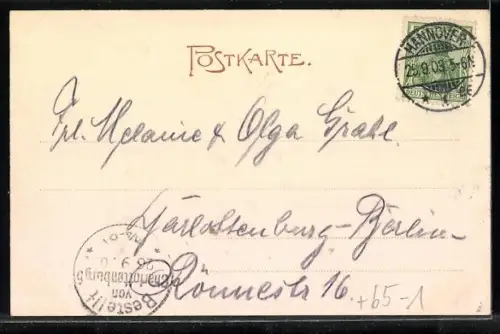 POSTKARTE.
HANNOVER
25.9.03.5-6N
Frl. Melanie & Olga Grabe.
Charlottenburg-Berlin-
Rönnestr 16.
Bestellt
von
Charlottenburg 5
+65-1